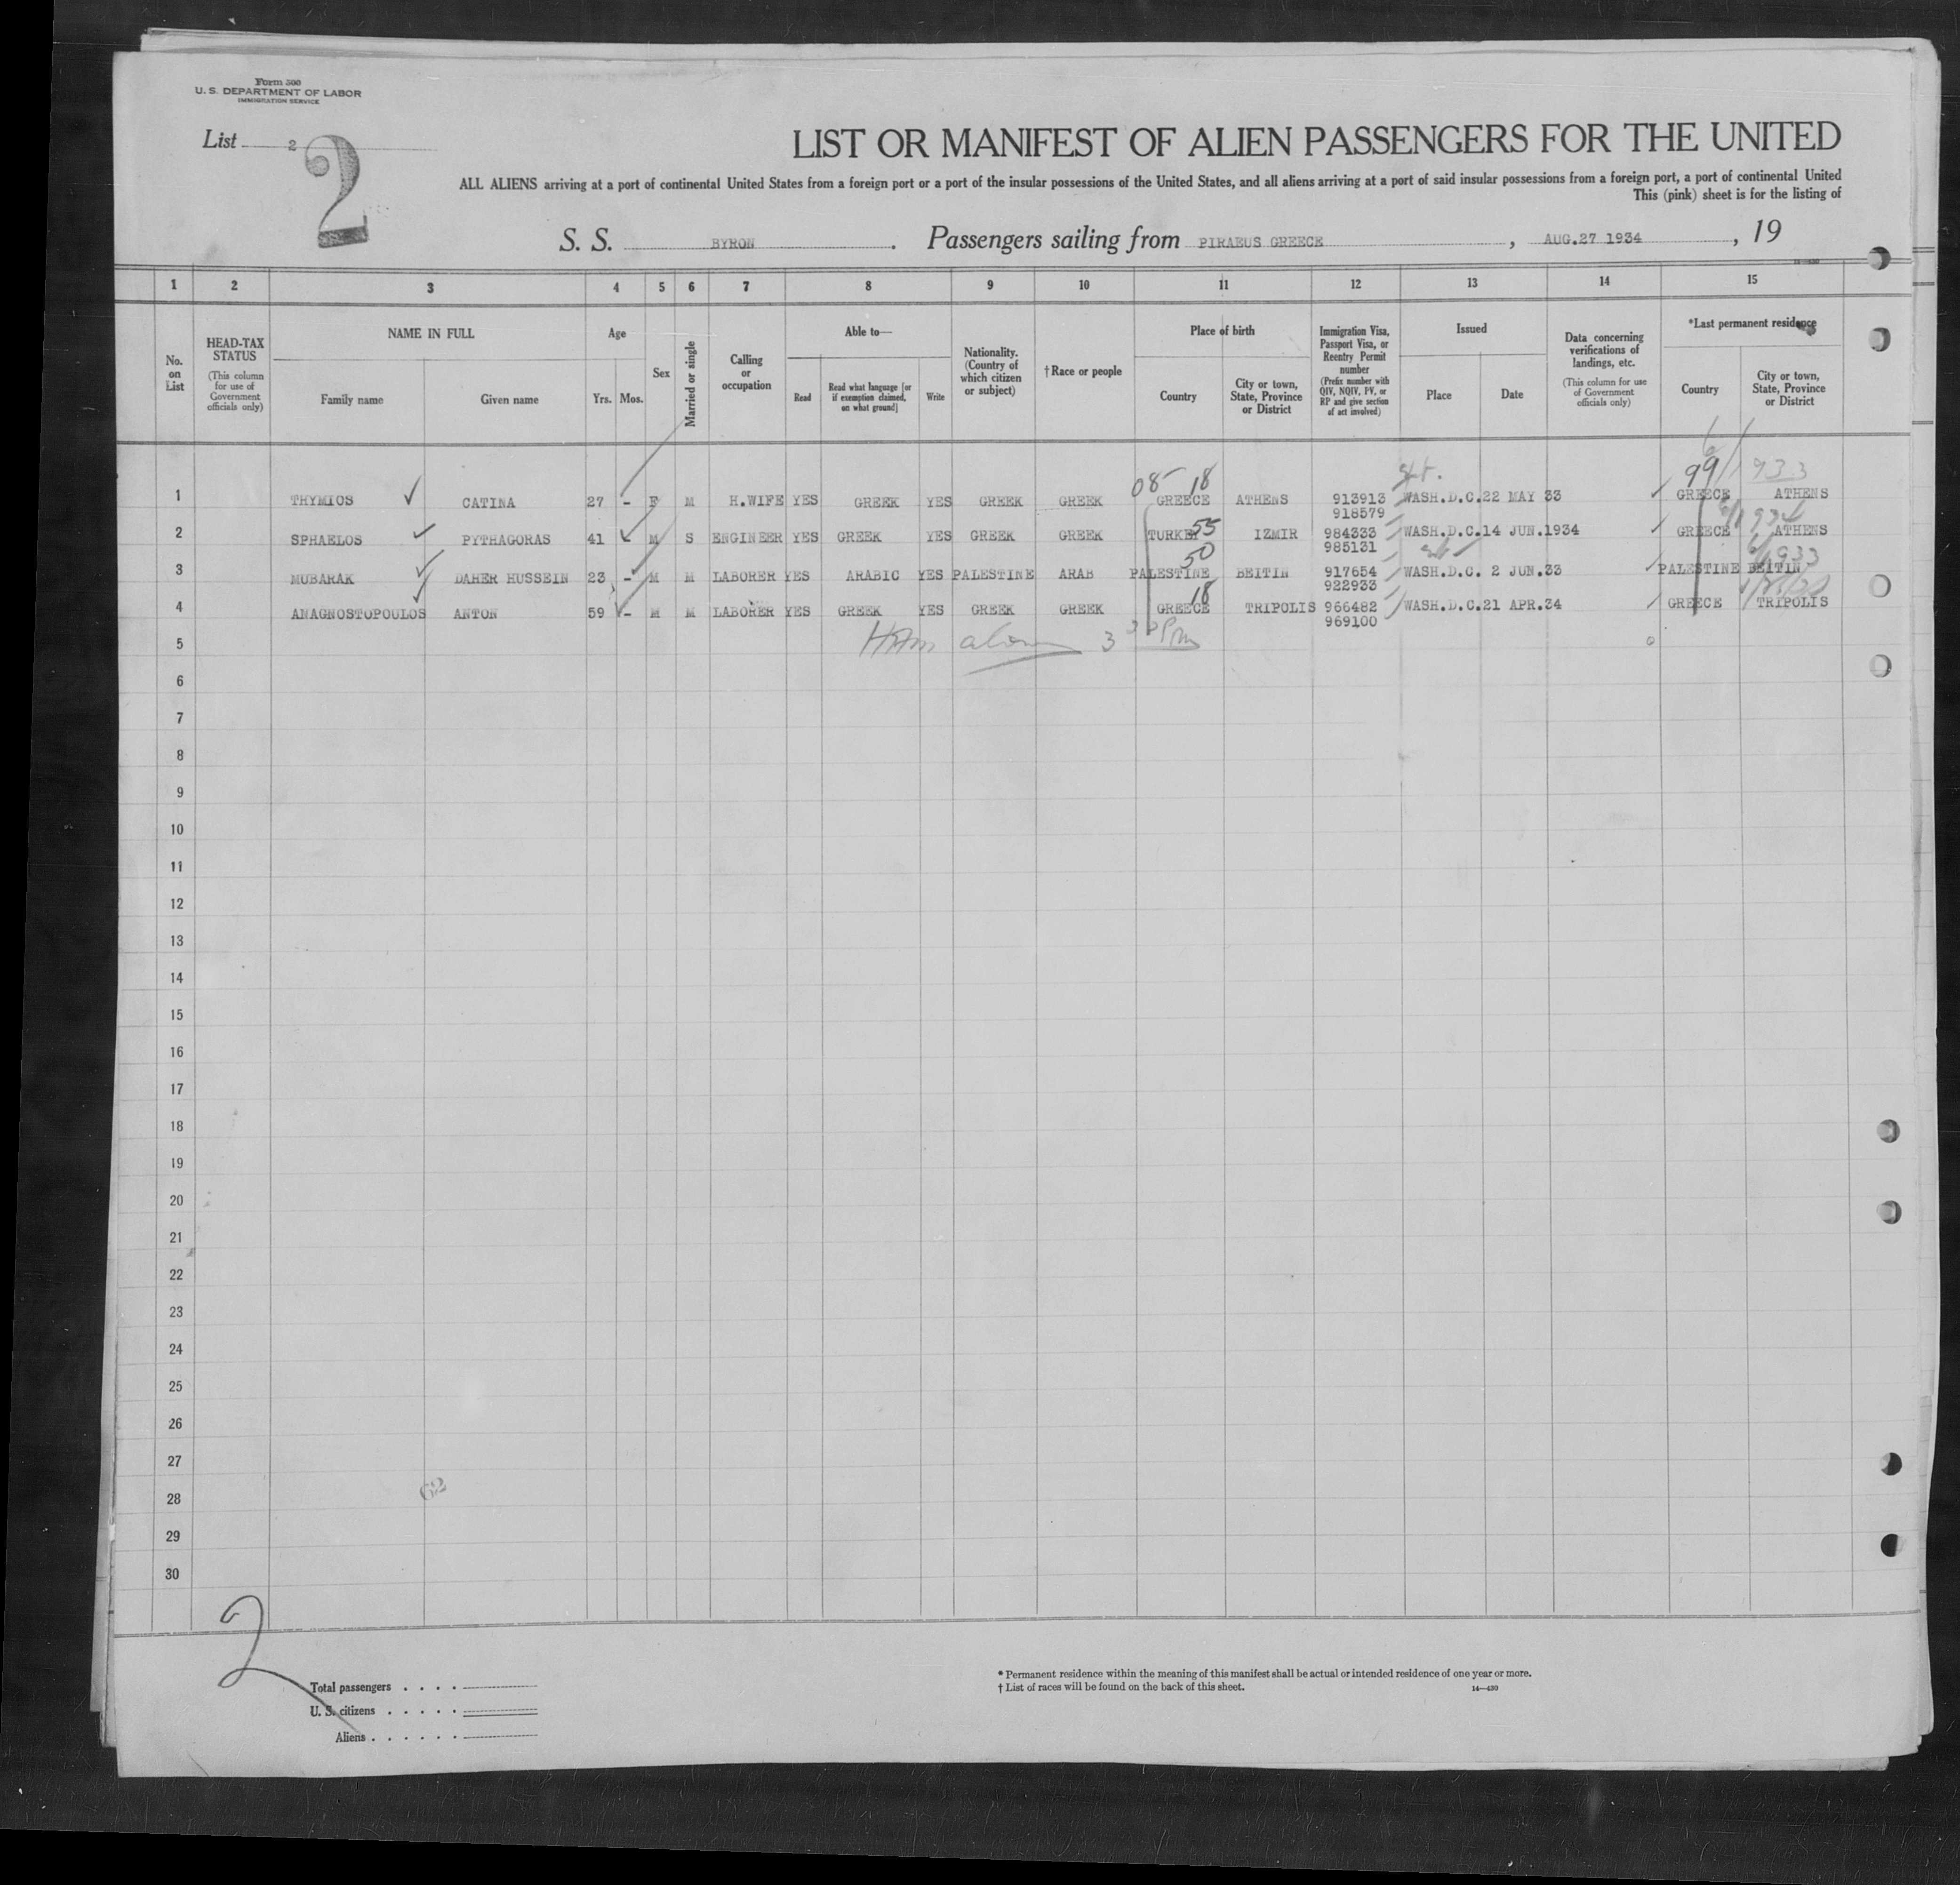 Form 500
U. S. DEPARTMENT OF LABOR
IMMIGRATION SERVICE
List 2
2
LIST OR MANIFEST OF ALIEN PASSENGERS FOR THE UNITED
ALL ALIENS arriving at a port of continental United States from a foreign port or a port of the insular possessions of the United States, and all aliens arriving at a port of said insular possessions from a foreign port, a port of continental United
This (pink) sheet is for the listing of
S. S. BYRON. Passengers sailing from PIRAEUS GREECE, AUG.27 1934, 19
1 2 3 4 5 6 7 8 9 10 11 12 13 14 15
No. on List
HEAD-TAX STATUS (This column for use of Government officials only)
NAME IN FULL
Family name
Given name
Age
Yrs. Mos.
Sex
Married or single
Calling or occupation
Able to—
Read
Read what language [or if exemption claimed, on what ground]
Write
Nationality. (Country of which citizen or subject)
† Race or people
Place of birth
Country
City or town, State, Province or District
Immigration Visa, Passport Visa, or Reentry Permit number (Prefix number with QIV, NQIV, PV, or RP and give section of act involved)
Issued
Place
Date
Data concerning verifications of landings, etc. (This column for use of Government officials only)
*Last permanent residence
Country
City or town, State, Province or District
08 18 99 933
1 THYMIOS CATINA 27 - F M H.WIFE YES GREEK YES GREEK GREEK GREECE ATHENS 913913 WASH.D.C.22 MAY 33 GREECE ATHENS
918579
55 934
2 SPHAELOS PYTHAGORAS 41 M S ENGINEER YES GREEK YES GREEK GREEK TURKEY IZMIR 984333 WASH.D.C.14 JUN.1934 GREECE ATHENS
985131
50 933
3 MUBARAK DAHER HUSSEIN 23 - M M LABORER YES ARABIC YES PALESTINE ARAB PALESTINE BEITIN 917654 WASH.D.C. 2 JUN.33 PALESTINE BEITIN
922933
18
4 ANAGNOSTOPOULOS ANTON 59 - M M LABORER YES GREEK YES GREEK GREEK GREECE TRIPOLIS 966482 WASH.D.C.21 APR.34 GREECE TRIPOLIS
969100
5 3 30 Pm
6
7
8
9
10
11
12
13
14
15
16
17
18
19
20
21
22
23
24
25
26
27
62
28
29
30
2
Total passengers
U. S. citizens
Aliens
* Permanent residence within the meaning of this manifest shall be actual or intended residence of one year or more.
† List of races will be found on the back of this sheet. 14—430